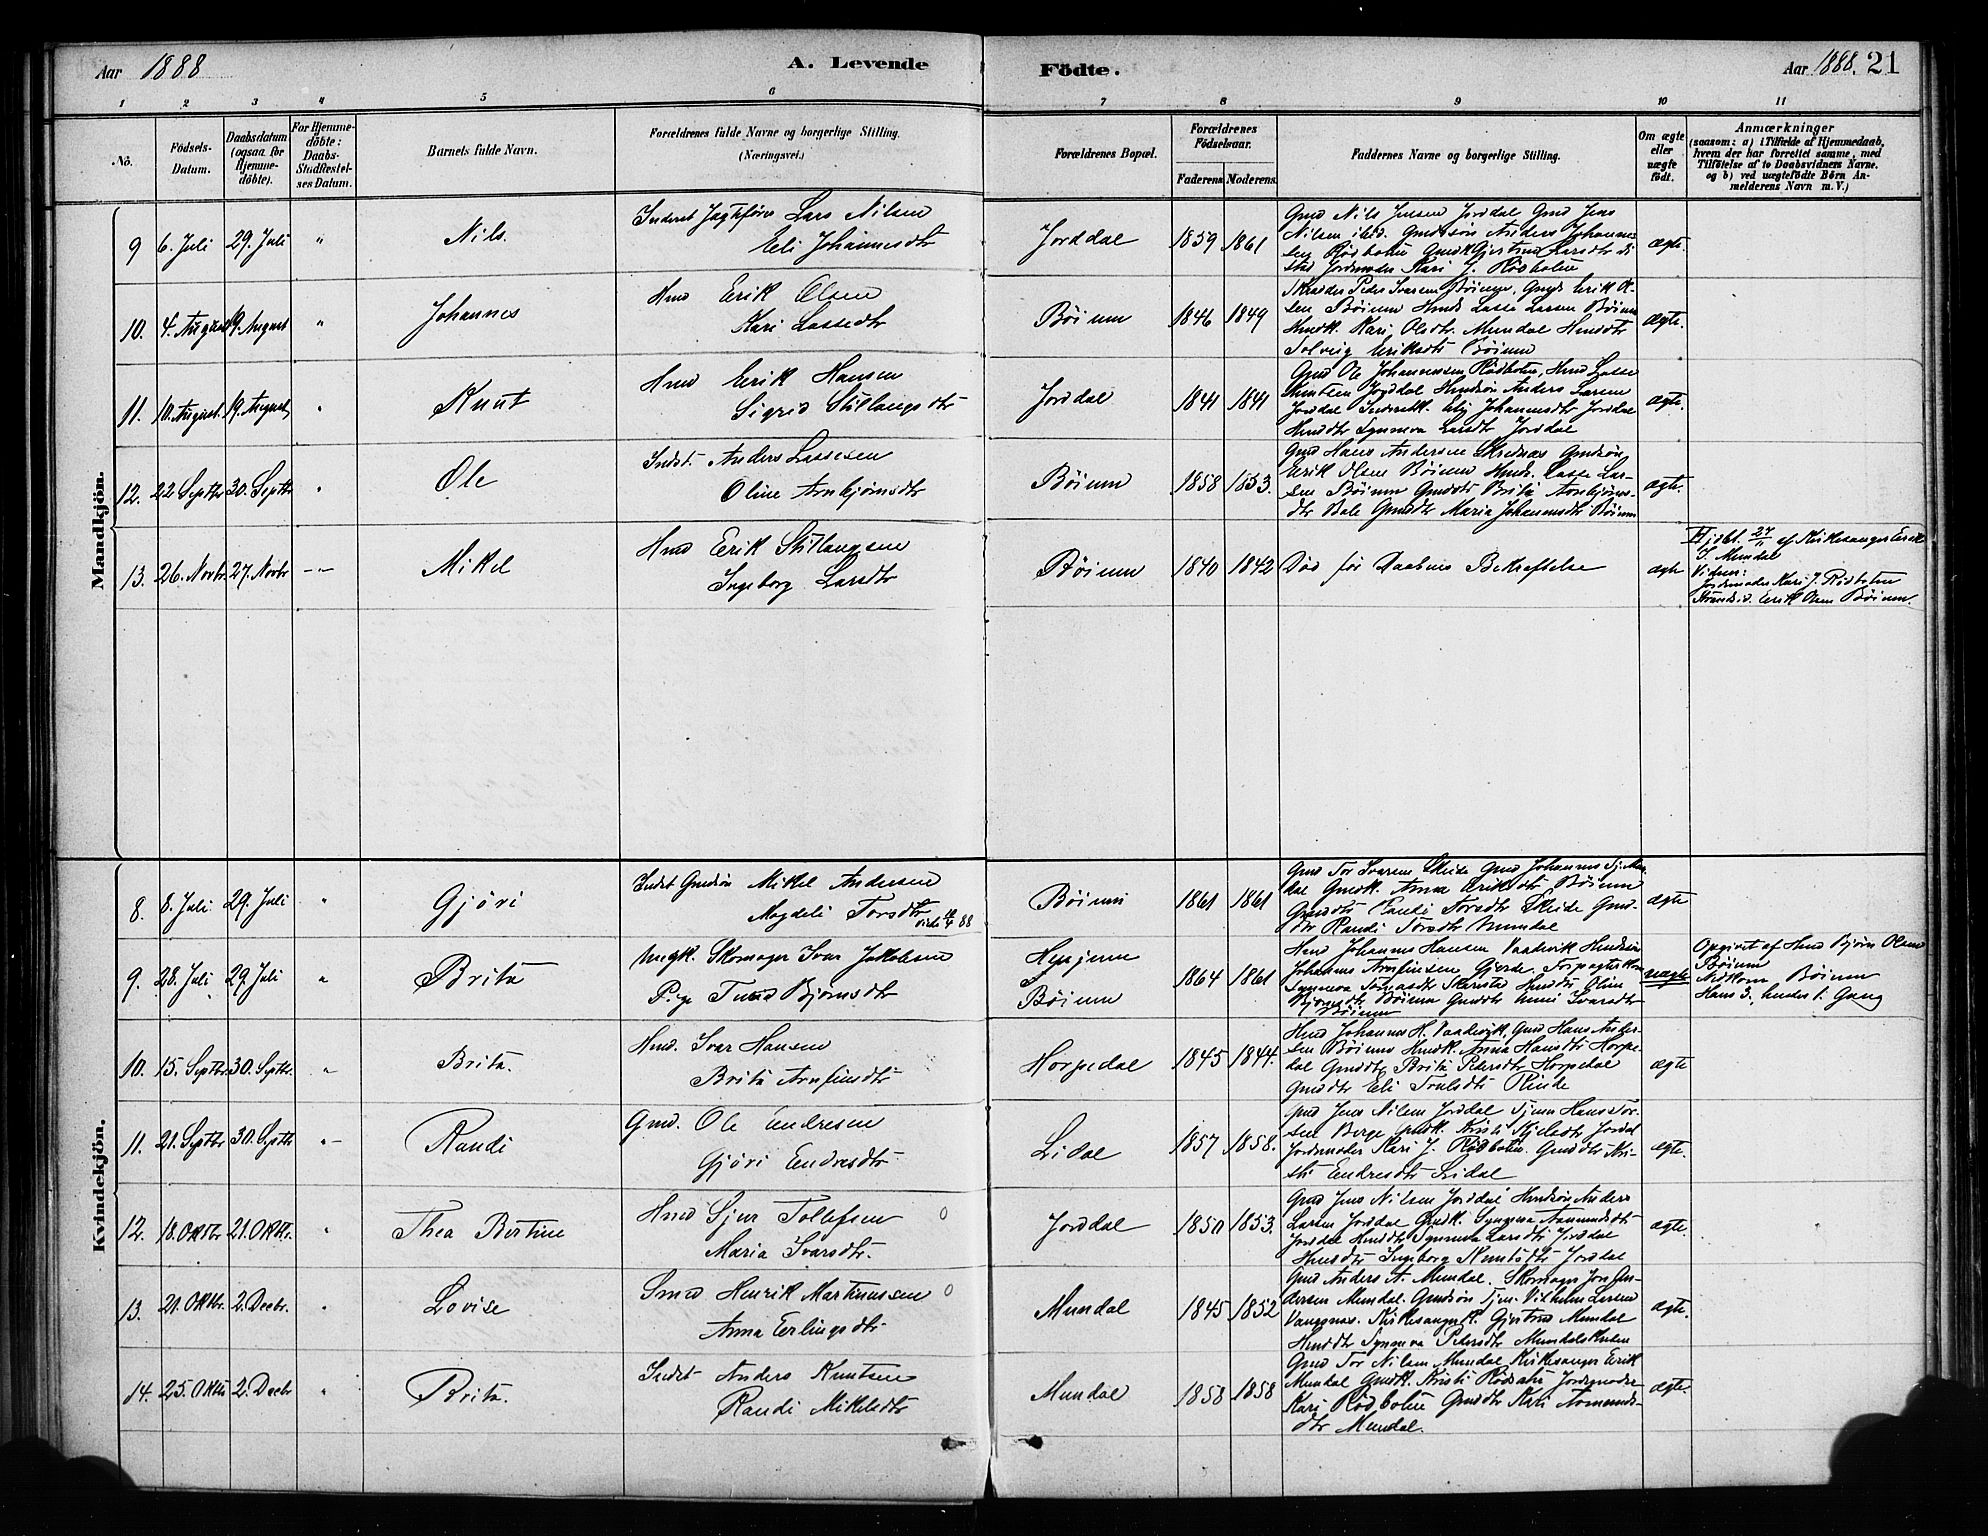 Aar 1888 A. Levende Födte. Aar 1888. 21
1 2 3 4 5 6 7 8 9 10 11
No.
Födsels-Datum.
Daabsdatum (ogsaa for Hjemme-döbte).
For Hjemme-döbte: Daabs-Stadfæstel-ses Datum.
Barnets fulde Navn.
Forældrenes fulde Navne og borgerlige Stilling. (Næringsvei.)
Forældrenes Bopæl.
Forældrenes Födselsaar.
Faderens Moderens
Faddernes Navne og borgerlige Stilling.
Om ægte eller uægte födt.
Anmærkninger
(saasom: a) i Tilfælde af Hjemmedaab,
hvem der har forrettet samme, med
Tilföielse af to Daabsvidners Navne.
og b) ved uægtefödte Börn An-
melderens Navn m. V.)
Mandkjön.
9 6. Juli 29. Juli " Nils. Inderst Jagtefører Lars Nilsen
Eli Johannesdtr
Jorddal 1859 1861
Gmd Nils Jensen Jorddal Gmd Jens
Nilsen ibid. Gmdssön Anders Johannes-
sen Rödbotn Gmdk Gjertrud Larsdtr
Jordmoder Kari J. Rödbotn
ægte.
10. 4. August 19. August " Johannes Hmd Erik Olsen
Kari Lassedtr
Böium 1846 1849
Skræder Peder Ivarsen Böium, Gmds Erik Ol-
sen Böium Hmds Lasse Larsen Böium
Hmdk. Kari Olsdtr. Mundal Hmddtr
Solveig Eriksdtr Böium
ægte.
11. 10. August. 19. August " Knut Hmd Erik Hansen
Sigrid Stillaugsdtr
Jorddal 1841 1841
Gmd Ole Johannessen Rödbotn, Hmd Lasse
Knutsen Jorddal Hmdsön Anders Larsen
Jorddal Inderstk. Eli Johannesdtr Jorddal
Hmddtr Synneva Larsdtr Jorddal
ægte.
12. 22 Septbr 30. Septbr " Ole Indst. Anders Lassesen
Oline Arnbjörnsdtr
Böium 1858 1853.
Gmd Hans Andersen Gmdsön
Erik Olsen Böium Hmds. Lasse Lar-
sen Böium Gmddtr Brita Arnbjörns-
dtr Bale Gmddtr Maria Johannesdtr Böium
ægte.
13. 26. Novbr 27. Novbr " Mikel Hmd Erik Stillaugsen
Ingeborg Larsdtr
Böium 1840 1842 Död før Daabens Bekræftelse ægte
Hjdbt. 27/11 af Kirkesanger Erik
J. Mundal
Vidner:
Jordmoder Kari J. Rödbotn
Strands. Erik Olsen Böium.
Kvindekjön.
8. 8. Juli 29. Juli " Gjöri Indst Gmdsön Mikel Andersen
Magdeli Torsdtr
88
Böium 1861 1861
Gmd Tor Ivarsen Skeide Gmd Johannes Mun-
dal Gmdk. Anna Eriksdtr Böium
Gmddtr Randi Torsdtr Skeide Gmd-
dtr Randi Torsdtr Mundal
ægte
9. 28. Juli 29. Juli " Brita Ungk. Skomager Ivar Jakobsen
Pige Bjørnsdtr
Böium 1864 1861
Hmd Johannes Hansen Vaadevik Hmdsön
Johannes Arnfinsen Gjerde.
Synneva Hmddtr Oline
Bjørnsdtr Böium Gmddtr Ivarsdtr
Böium
uægte
Opgivet af Hmd Bjørn Olsen
Böium
Böium
Hans 3., hendes 1. Gang
10. 15. Septbr 30. Septbr. " Brita. Hmd. Ivar Hansen
Brita Arnfinsdtr
Horpedal 1845 1844.
Hmd Johannes H. Vaadevik, Gmd Hans Ander-
sen Böium Hmdk. Anna Hansdtr Horpe-
dal Gmddtr Brita Pedersdtr Horpedal
Gmddtr Eli Trulsdtr
ægte
11. 21. Septbr 30. Septbr " Randi Gmd. Ole Endresen
Gjöri Endresdtr
Lidal 1857 1858.
Gmd Jens Nilsen Jorddal Tjener Hans Tor-
sen Berge Gmdk. Kristi Kjelsdtr Jorddal
Jordmoder Kari J. Rödbotn. Gmddtr Kri-
sti Endresdtr Lidal
ægte.
12. 18. Oktbr 21. Oktbr. " Thea Bertine Hmd Sjur Tollefsen 0
Maria Ivarsdtr.
Jorddal 1850 1853.
Gmd Jens Nilsen Jorddal Hmdsön Anders
Larsen Jorddal Gmdk. Synneva Aamundsdtr
Jorddal Hmddtr Synneva Larsdtr Jorddal
Hmddtr Ingeborg Knutsdtr Jorddal
ægte.
13. 21. Oktbr. 2. Decbr. " Lovise Smed Henrik Martinussen 0
Anna Erlingsdtr
Mundal 1845 1852
Gmd Anders A. Mundal. Skomager Jon An-
dersen Mundal. Gmdsön Tjen. Vilhelm Larsen
Vangsnæs. Kirkesangerk. Gjertrud Mundal
Hmddtr Synneva Pedersdtr Mundal
ægte.
14. 25. Oktbr 2. Decbr " Brita. Indst Anders Knutsen
Randi Mikelsdtr
Mundal 1858 1858
Gmd Tor Nilsen Mundal Kirkesanger Erik
Mundal Gmdk. Kristi Jordmoder
Kari Rödbotn Gmddtr Kari Aamunds-
dtr Mundal.
ægte.